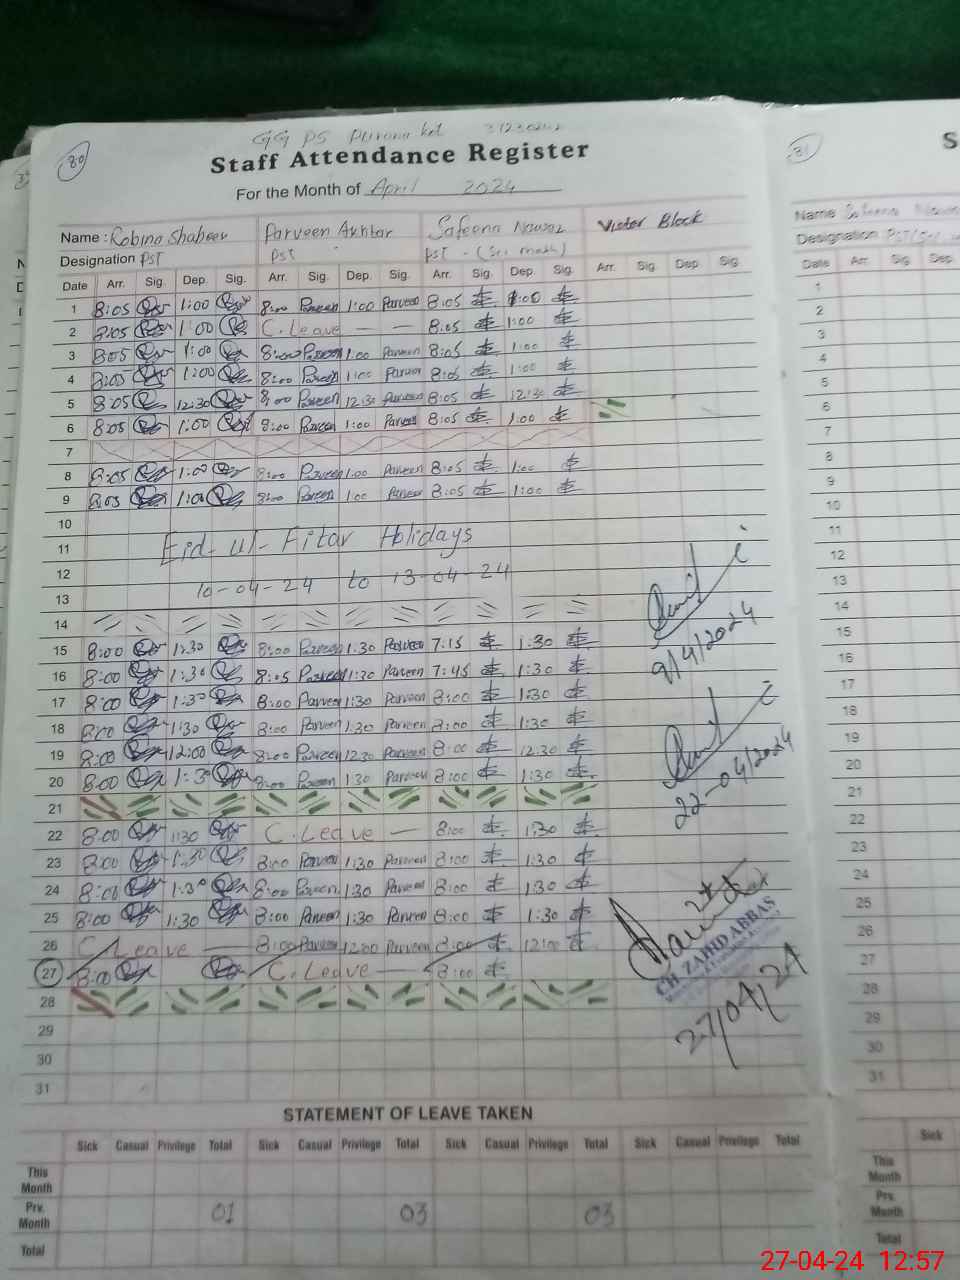 80
GG PS Purana Kot
Staff Attendance Register
For the Month of April 2024
Name : Robina Shaheen Parveen Akhtar Safeena Nawaz Visitor Block
Designation PST PST PST - (Sci math)
Date Arr. Sig. Dep. Sig. Arr. Sig. Dep. Sig. Arr. Sig. Dep. Sig. Arr. Sig. Dep Sig
1 8:05 1:00 8:00 Parveen 1:00 Parveen 8:05 1:00
2 8:05 1:00 C. Leave — — 8:05 1:00
3 8:05 1:00 8:00 Parveen 1:00 Parveen 8:05 1:00
4 8:05 1:00 8:00 Parveen 1:00 Parveen 8:05 1:00
5 8:05 12:30 8:00 Parveen 12:30 Parveen 8:05 12:30
6 8:05 1:00 8:00 Parveen 1:00 Parveen 8:05 1:00
7
8 8:05 1:00 8:00 Parveen 1:00 Parveen 8:05 1:00
9 8:05 1:00 8:00 Parveen 1:00 Parveen 8:05 1:00
10
11 Eid-ul-Fitar Holidays
12 10-04-24 to 13-04-24
13
14
15 8:00 1:30 8:00 Parveen 1:30 Parveen 7:15 1:30
16 8:00 1:30 8:05 Parveen 1:30 Parveen 7:45 1:30
17 8:00 1:30 8:00 Parveen 1:30 Parveen 8:00 1:30
18 8:00 1:30 8:00 Parveen 1:30 Parveen 8:00 1:30
19 8:00 12:00 8:00 Parveen 12:30 Parveen 8:00 12:30
20 8:00 1:30 8:00 Parveen 1:30 Parveen 8:00 1:30
21
22 8:00 1:30 C. Leave — 8:00 1:30
23 8:00 1:30 8:00 Parveen 1:30 Parveen 8:00 1:30
24 8:00 1:30 8:00 Parveen 1:30 Parveen 8:00 1:30
25 8:00 1:30 8:00 Parveen 1:30 Parveen 8:00 1:30
26 C. Leave — 8:00 Parveen 12:00 Parveen 8:00 12:00
27 8:00 C. Leave — 8:00
28
29
30
31
9/4/2024
22-04/2024
CH ZAHID ABBAS
27/04/24
STATEMENT OF LEAVE TAKEN
Sick Casual Privilege Total Sick Casual Privilege Total Sick Casual Privilege Total Sick Casual Privilege Total
This Month
Prv. Month 01 03 03
Total
81
S
Name Safeena Nawaz
Designation
Date Arr. Sig Dep
1
2
3
4
5
6
7
8
9
10
11
12
13
14
15
16
17
18
19
20
21
22
23
24
25
26
27
28
29
30
31
Sick
This Month
Prv. Month
Total
27-04-24 12:57